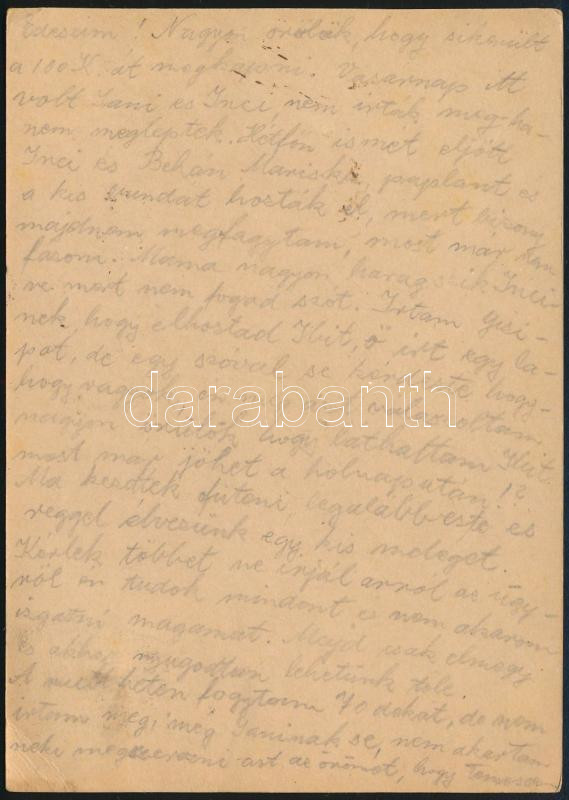 Édesém! Nagyon örülök, hogy sikerült
a 100 K. át megkapni. Vasarnap itt
volt Sani és Inci, nem irtak meg ha-
nem megleptek. Hétfőn ismét eljött
Inci és Behán Mariska, paplant és
a kis bundat hozták el, mert bizony
majdnem megfagytam, most mar nem
fazoni. Mama nagyon haragszik Inci-
re mert nem fogad szót. Irtam Gisi-
nek, hogy elhostad Ibit, ő irt egy la-
pot, de egy szoval se kérdezte hogy-
hogy vagyok, en valaszoltam
darabanth
nagyon örülök hogy lathattam Ibit
most mar jöhet a holnaputan!?
Ma kezdtek fűteni, legalabb este és
reggel elvezünk egy kis meleget.
Kérlek többet ne irjál arrol az ügy-
röl én tudok mindent és nem akarom
izgatni magamat. Majd csak elmegy
és akkor nyugodtan lehetünk tőle.
A mult héten fogytam 40 dekat, de nem
irtam meg, még Saninak se, nem akartam
neki megszerezni azt az örömöt, hogy